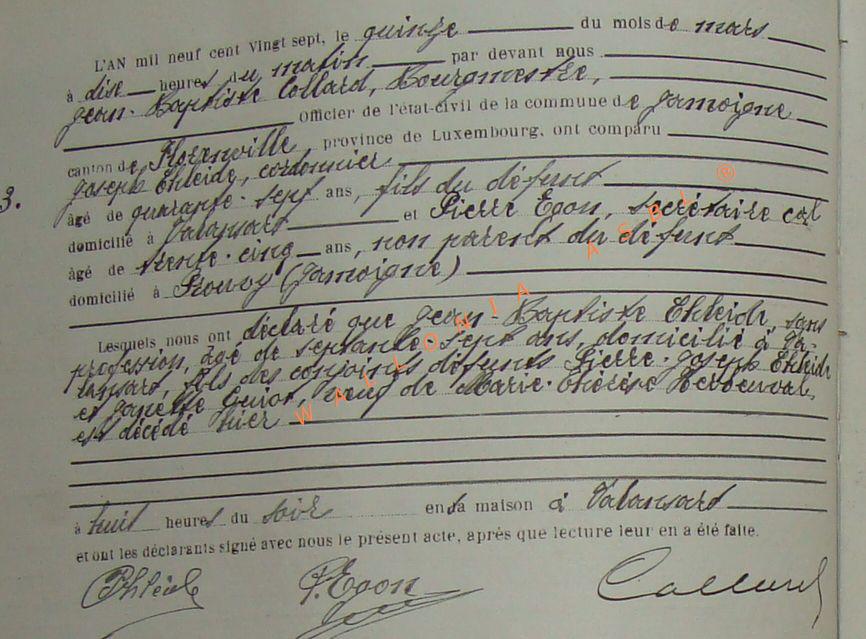 L'AN mil neuf cent vingt sept, le quinze du mois de mars
à dix heures du matin par devant nous
Jean-Baptiste Collard, Bourgmestre,
officier de l'état-civil de la commune de Jamoigne
canton de Florenville, province de Luxembourg, ont comparu
Joseph Ehleide, cordonnier
3.
âgé de quarante-sept ans, fils du défunt
domicilié à Valansart et Pierre Egon, secrétaire cal
âgé de trente-cinq ans, non parent du défunt
domicilié à Prouvy (Jamoigne)
Lesquels nous ont déclaré que Jean-Baptiste Ehleide, sans
profession, âgé de septante-sept ans, domicilié à Va-
lansart, fils des conjoints défunts Pierre-Joseph Ehleide
et Guiot, veuf de Marie-Thérèse
est décédé hier
à huit heures du soir en sa maison à Valansart
et ont les déclarants signé avec nous le présent acte, après que lecture leur en a été faite.
P. Egon Collard
WALLONIA ASBL ®